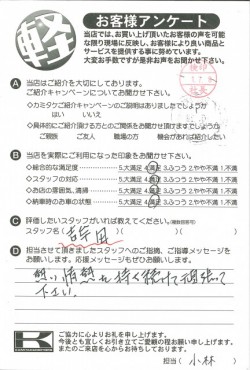 軽
お客様アンケート
当店では、お買い上げ頂いたお客様の声を可能
な限り現場に反映し、お客様により良い商品と
サービスを提供する事に努めています。
大変お手数ですが是非お声をお聞かせ下さい。
A 当店はご紹介を大切にしております。
ご紹介キャンペーンについてお聞かせ下さい。
・カミタケご紹介キャンペーンのご説明はありましたでしょうか
はい いいえ
・具体的にご紹介頂ける方とのご関係をお聞かせ頂けますでしょうか
ご親族 ご友人 職場の方 趣味のお仲間
B 当店を実際にご利用になった印象をお聞かせ下さい。
・総合的な満足度 5.大満足 4.満足 3.ふつう 2.やや不満 1.不満
・スタッフの対応 5.大満足 4.満足 3.ふつう 2.やや不満 1.不満
・お店の雰囲気、清掃 5.大満足 4.満足 3.ふつう 2.やや不満 1.不満
・納車時のお車の状態 5.大満足 4.満足 3.ふつう 2.やや不満 1.不満
C 評価したいスタッフがいれば教えてください。(複数回答可)
スタッフ名( 吉年田 )
D 担当させて頂きましたスタッフへのご指摘、ご指導メッセージを
お願いします。応援メッセージもぜひお願いします。
熱い情熱を持ち続けて頑張って
下さい。
K
ご協力に心よりお礼を申し上げます。
今後とも宜しくお引き立てご愛顧の程お願い申し上げます。
またのご来店を心からお待ちしております。
担当( 小林 )